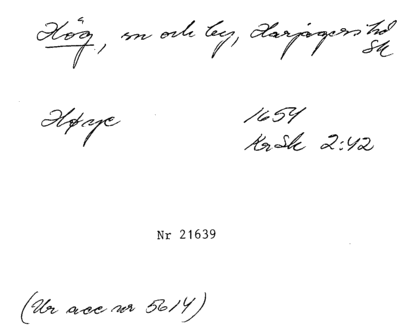 Hög, sn och by, Harjagers hd
Sk
Høye 1654
KrSk 2:42
Nr 21639
(Ur acc nr 5614)